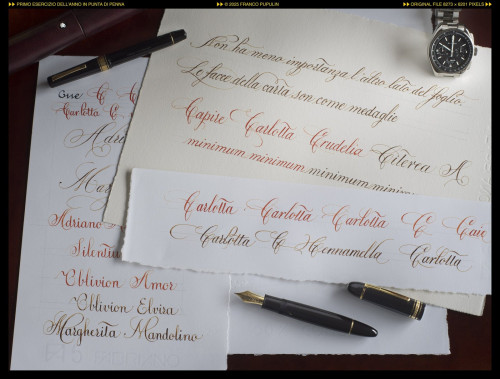 PRIMO ESERCIZIO DELL'ANNO IN PUNTA DI PENNA
© 2023 FRANCO PUPULIN
ORIGINAL FILE 8272 x 6201 PIXELS
Non ha meno importanza l'altro lato del foglio.
Le facce della carta son come medaglie
Capire Carlotta Crudelia Citerea A
minimum minimum minimum minimum
Carlotta Carlotta Carlotta C Caie
Carlotta C Cennamella Carlotta
Cose C C
Carlotta C
Adre
Mar
Adriano
Silentiu
Oblivion Amor
Oblivion Elvira
Margherita Mandolino